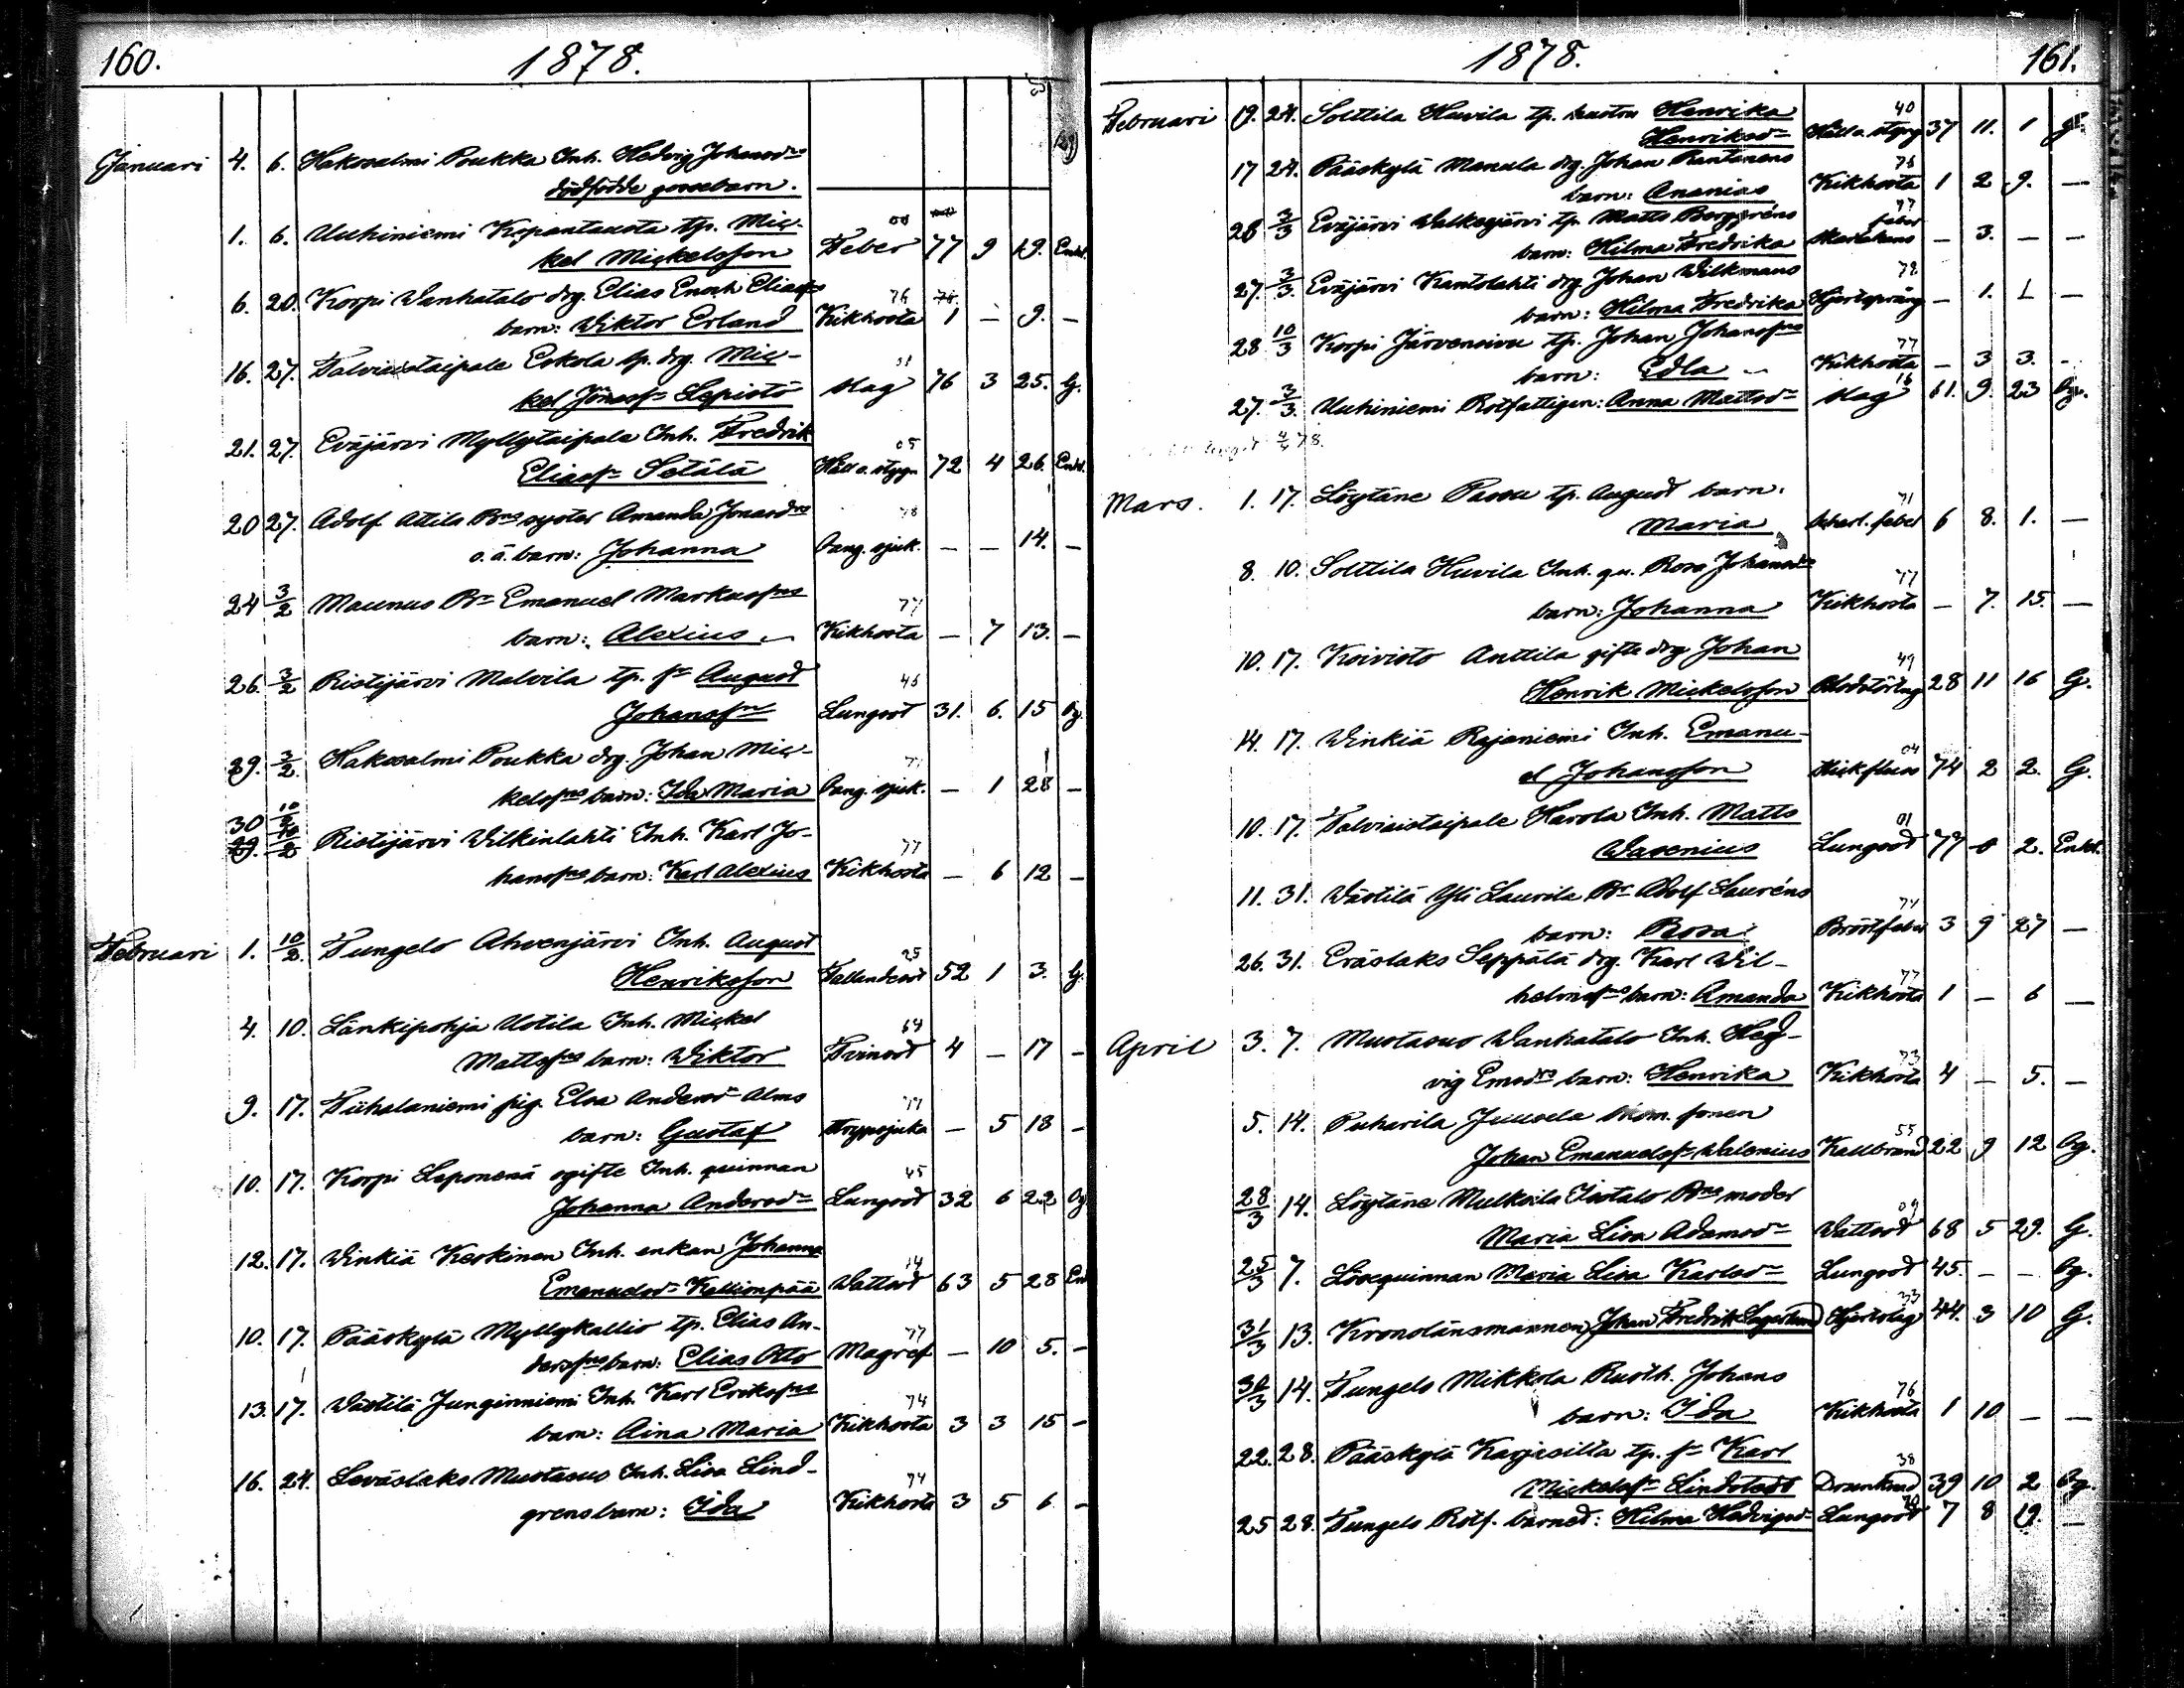 160. 1878.
Januari 4. 6. Hakosalmi Poukka Inh. Hedvig Johansdrs
dödfödde gossebarn.
1. 6. Uuhiniemi Kopantausta tp. Mic-
kel Mickelsson Feber 77 9 19. Enkl.
6. 20. Korpi Wanhatalo drg. Elias Enoch Eliass
barn: Wiktor Erland Kikhosta 76 1 – 9. –
16. 27. Talviaistaipale Eskola tp. drg. Mic-
kel Slag 76 3 25. G.
21. 27. Eväjärvi Myllytaipale Inh. Fredrik
Eliass Setälä Håll o. stygn 05 72 4 26. Enkl.
20 27. Adolf Attila Bns syster Amanda Jonasdrs
o.ä. barn: Johanna Bang. sjuk. 78 – – 14. –
24 3/2 Maunus Bn Emanuel Markussns
barn: Alexius Kikhosta 77 – 7 13. –
26. 3/2 Ristijärvi Malvila tp. sn August
Johanssn Lungsot 46 31. 6. 15 Og.
29. 3/2. Hakosalmi Poukka drg. Johan Mic-
kelssns barn: Ida Maria Bang. sjuk. 77 – 1 28 –
30 10/2
29. 10/2 Ristijärvi Wilkinlahti Inh. Karl Jo-
hanssns barn: Karl Alexius Kikhosta 77 – 6 12 –
Februari 1. 10/2. Tungelo Ahvenjärvi Inh. August
Henriksson Fallandesot 25 52 1 3. G.
4. 10. Länkipohja Uotila Inh. Mickel
Mattssns barn: Wiktor Tvinsot 4 – 17 –
9. 17. Tiihalaniemi pig. Elsa Andersdr Alms
barn: Gustaf Strypsjuka 77 – 5 18 –
10. 17. Korpi Leponenä ogifte Inh. quinnan
Johanna Andersdr Lungsot 45 32 6 22 Og
12. 17. Winkiä Keskinen Inh. enkan Johanna
Emanuelsdr Kallionpää Wattsot 14 63 5 28 Enk
10. 17. Pääskylä Myllykallio tp. Elias An-
derssns barn: Elias Otto Magref 77 – 10 5. –
13. 17. Västilä Junginniemi Inh. Karl Erikssns
barn: Aina Maria Kikhosta 74 3 3 15 –
16. 24. Leväslaks Mustasuo Inh. Lisa Lind-
grens barn: Ida Kikhosta 74 3 5 6 –
1878. 161.
Februari 19. 24. Solttila Huvila tp. hustru Henrika
Henriksdr Håll o. styng 40 37 11. 1 G.
17 24. Pääskylä Manula drg. Johan Rantanens
barn: Ananias Kikhosta 76 1 2 9. –
28 3/3 Eväjärvi Walkeajärvi tp. Matts Berggréns
barn: Hilma Fredrika Skarlakans feber 77 – 3. – –
27. 3/3. Eväjärvi Kantolahti drg. Johan Wilkmans
barn: Hilma Fredrika Hjertsprång 78 – 1. 1 –
28 10/3 Korpi Järvensivu tp. Johan Johanssns
barn: Edla Kikhosta 77 – 3 3. –
27. 3/3. Uuhiniemi Rotfattigen: Anna Mattsdr Slag 16 61. 9. 23 Og.
Mars. 1. 17. Löytäne Passu tp. August barn:
Maria Scharl. feber 71 6 8. 1. –
8. 10. Solttila Huvila Inh. qu. Rosa Johansdrs
barn: Johanna Kikhosta 77 – 7. 15. –
10. 17. Koivisto Anttila gifte drg Johan
Henrik Mickelsson Blodstörtng 49 28 11 16 G.
14. 17. Winkiä Rajaniemi Inh. Emanu-
el Johansson Stickfluss 04 74 2 2. G.
10. 17. Talviaistaipale Harola Inh. Matts
Wasenius Lungsot 01 77 0 2. Enkl.
11. 31. Västilä Yli Laurila Bn Adolf Lauréns
barn: Rosa Bröstfeber 74 3 9 27 –
26. 31. Eräslaks Seppälä drg. Karl Wil-
helmssns barn: Amanda Kikhosta 77 1 – 6 –
April 3. 7. Mustasuo Wanhatalo Inh. Hed-
vig Emsdrs barn: Henrika Kikhosta 73 4 – 5. –
5. 14. Puharila Juusela sonen
Johan Emanuelssn Walenius Kallbrand 55 22 9 12 Og.
28/3 14. Löytäne Mulkoila Isotalo Bns moder
Maria Lisa Adamsdr Wattsot 09 68 5 29. G.
25/3 7. Lösequinnan Maria Lisa Karlsdr Lungsot 45. – – Og.
31/3 13. Kronolänsmannen Johan Fredrik Lagerlund Hjertslag 33 44. 3 10 G.
30/3 14. Tungelo Mikkola Rusth. Johans
barn: Ida Kikhosta 76 1 10 – –
22. 28. Pääskylä Karjusilta tp. sn Karl
Mickelssn Lindstedt Drunknad 38 39 10 2 Og.
25 28. Tungelo Rotf. barnet: Hilma Hedvigsdr Lungsot 70 7 8 19. –